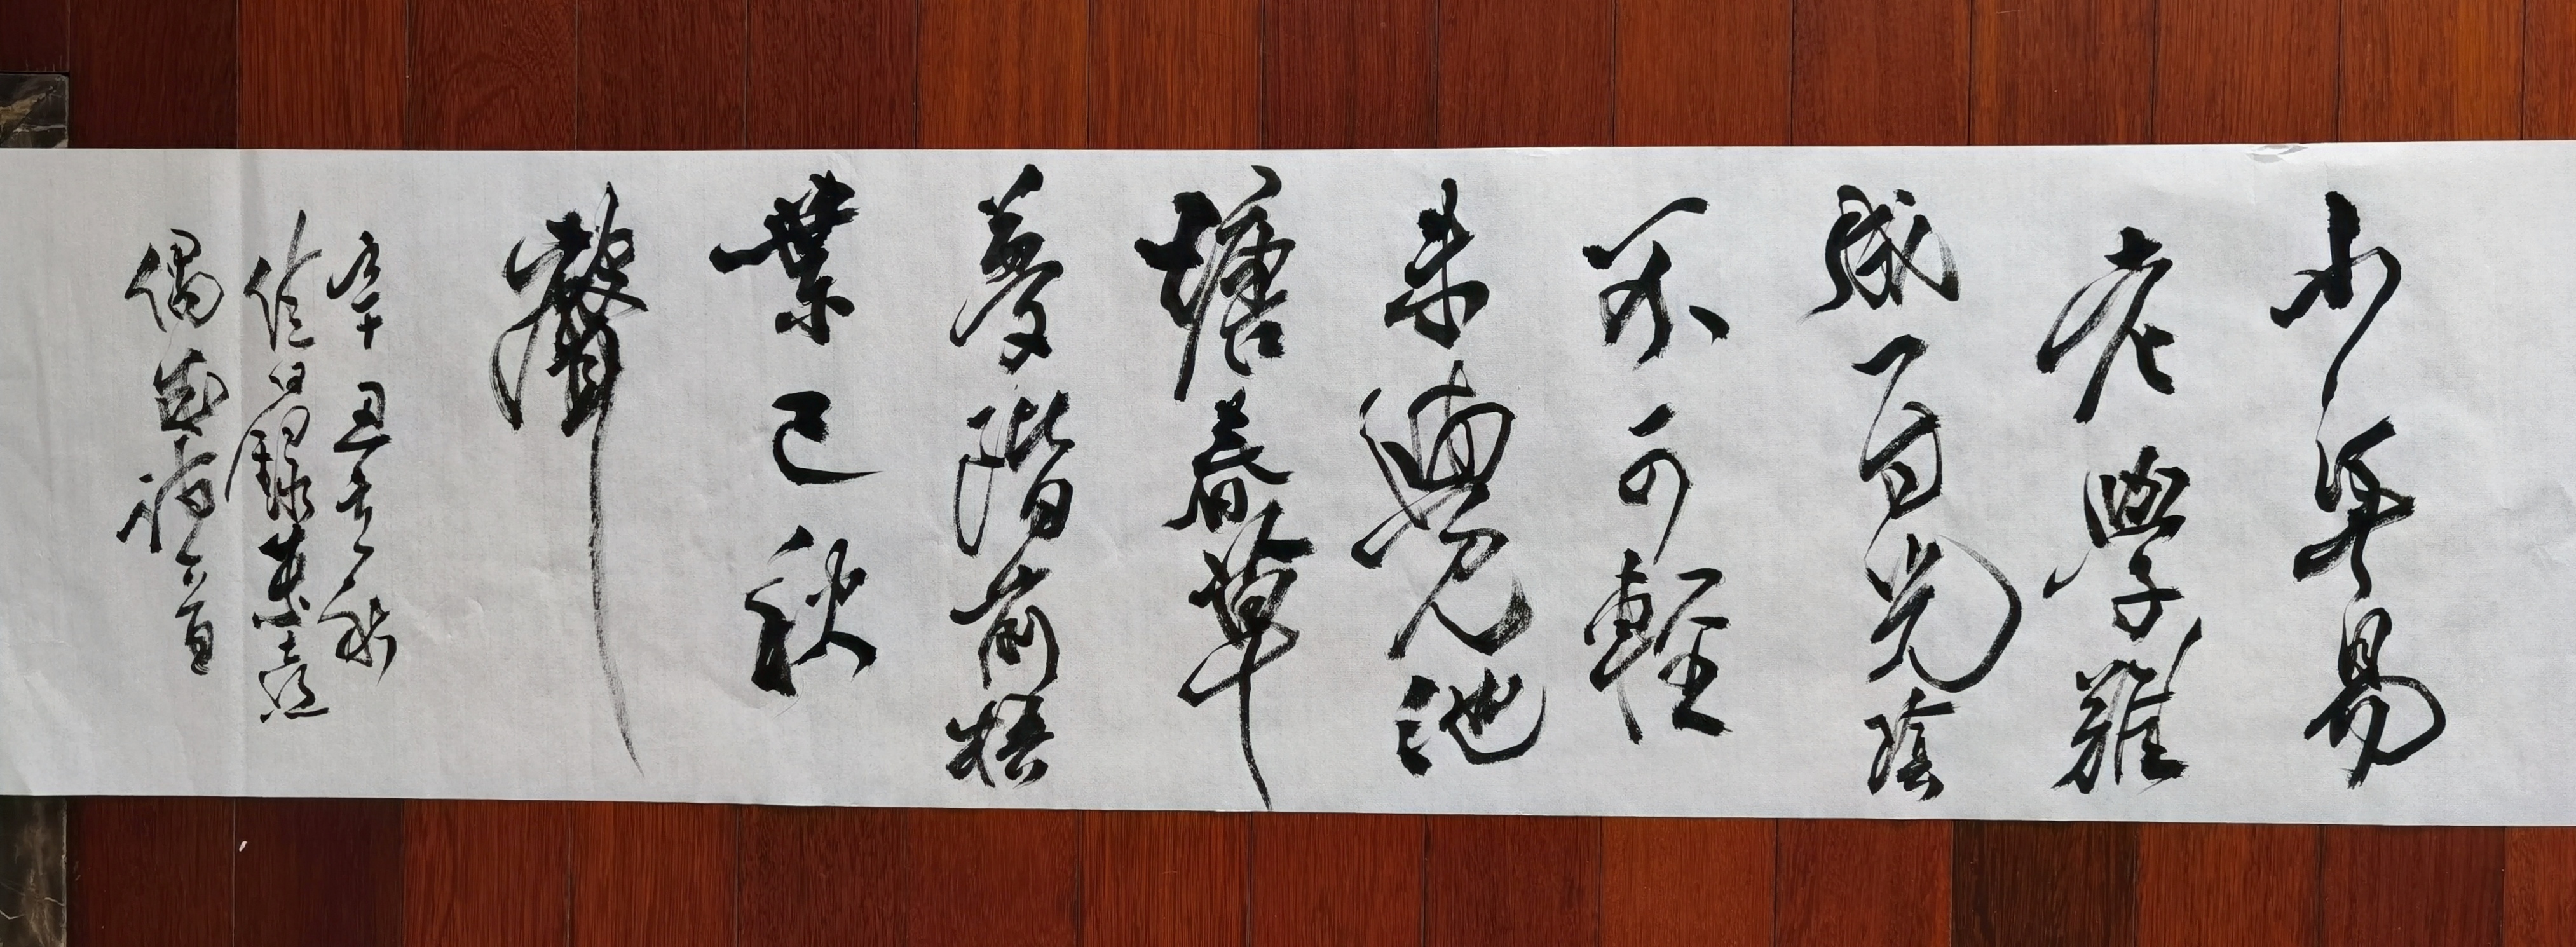 少年易
老學難
成一寸光陰
不可輕
未覺池
塘春草
夢階前梧
葉已秋
聲
辛丑秋
錄朱熹
偶成詩一首